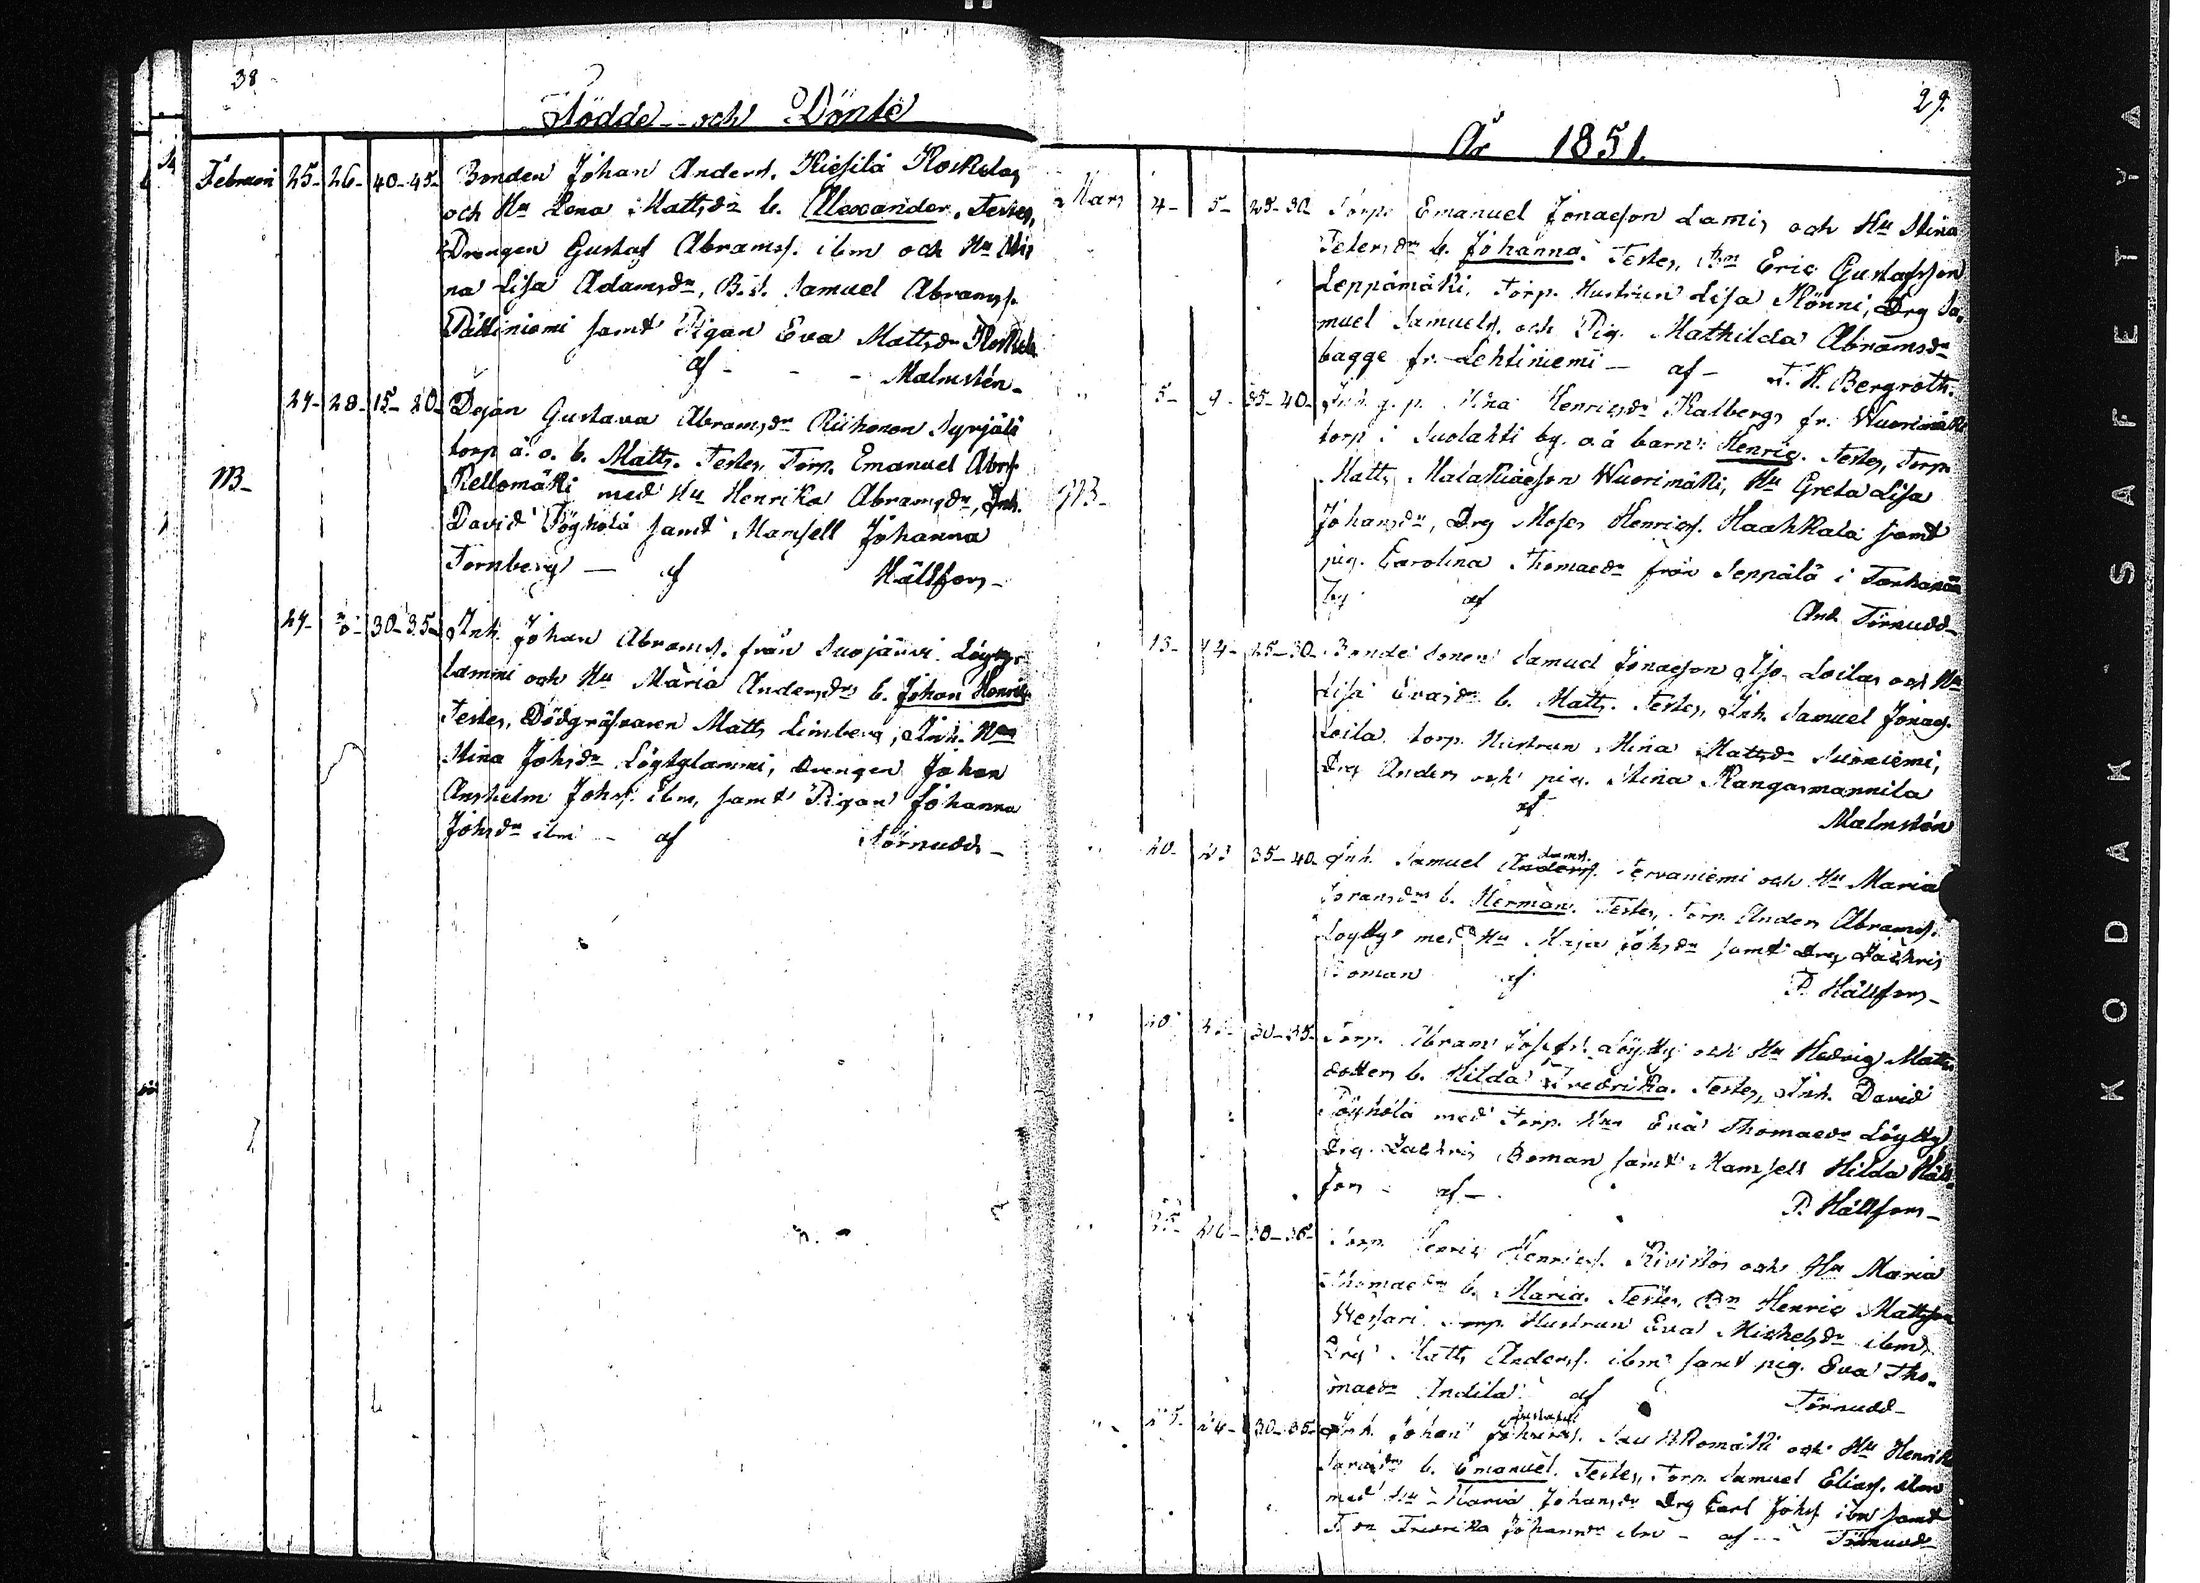 38
Födde och Döpte
Februari 25- 26- 40-45- Bonden Johan Anders. Hiesilä Koskela,
och Hu Lena Mattsdr b. Alexander. Testes,
Drengen Gustaf Abramss. ibm och Hu
na Lisa Adamsdr, B.s. Samuel Abramss.
Pättiniemi samt Pigan Eva Mattsdr Koskela
af - - - Malmstén-
27- 28- 15- 20- Dejan Gustava Abramsdr Riihonen Syrjälä
torp ä. o. b. Matts. Testes, Torp. Emanuel Abrs.
NB- Kellomäki med Hu Henrika Abramsdr, Inh.
David Pöyhölä samt Mamsell Johanna
Fornberg — af Hällfors-
27- 30-35- Inh. Johan Abrams. från Suojärvi Löyty-
lammi och Hu Maria Andersdr b. Johan Henric
Testes, Dödgräfvaren Matts Limberg, Inh. Hu
Stina Johsdr Löytylammi, drengen Johan
Anshelm Johss. ibm, samt Pigan Johanna
Johsdr ibm - af Törnudd-
29.
År 1851.
Mars 4- 5- 25-30- Torp. Emanuel Jonasson Lamis och Hu Stina
Petersdr b. Johanna. Testes, Bn Eric Gustafsson
Leppämäki, Torp. Hustrun Lisa Könni, Drg Sa-
muel Samuels. och Pig. Mathilda Abramsdr
bagge fr. Lehtiniemi — af — F. H. Bergroth.
" 5- 9- 35-40- Inh. q. p. Stina Henricsdr Kalberg fr. Wuorimäki
torp i Suolahti by. o ä barn: Henric. Testes, Torp.
Matts Malakiasson Wuorimäki, Hu Greta Lisa
NB- Johansdr, Drg Moses Henrics. Haahkala samt
pig. Carolina Thomasdr från Seppälä i
by af And. Törnudd-
13- 14- 25-30- Bonde Sonen Samuel Jonasson Iso Loilas och Hu
Lisa Evasdr b. Matts. Testes, Inh. Samuel Jonas.
Loila torp. Hustrun Stina Mattsdr Suoniemi,
Drg Anders och pig. Stina Kangasmannila
af Malmstén
20- 23 35-40- Inh. Samuel Adams. Tervaniemi och Hu Maria
b. Herman. Testes, Torp. Anders Abrams.
Löytty med Hu Maja Johsdr samt Drg Zachris
Boman af P. Hällfors-
" 20 30-35- Torp. Abram Josefs. Löytty och Hu Hedvig Matts
dotter b. Hilda Fredrika. Testes, Inh. David
Pöyhölä med Torp. Hu Eva Thomasdr Löytty
Drg. Zachris Boman samt Mamsell Hilda Häll-
fors - af — P. Hällfors-
" 25- 26- 30-35- Torp. Henric Henrics. Kivistö och Hu Maria
Thomasdr b. Maria. Testes, Bn Henric Mattsson
Wessari Torp. Hustrun Eva Michelsdr ibm,
Drg Matts Anderss. ibm samt pig. Eva Tho-
masdr Andila af Törnudd-
" 30-35- Inh. Johan Gustafs. och Hu Henrik
b. Emanuel. Testes, Torp. Samuel Elias. ibm
med Hu Maria Johansdr Drg Carl Johss ibm samt
Fredrika Johansdr ibm - af - Törnudd-
KODAK SAFETY A